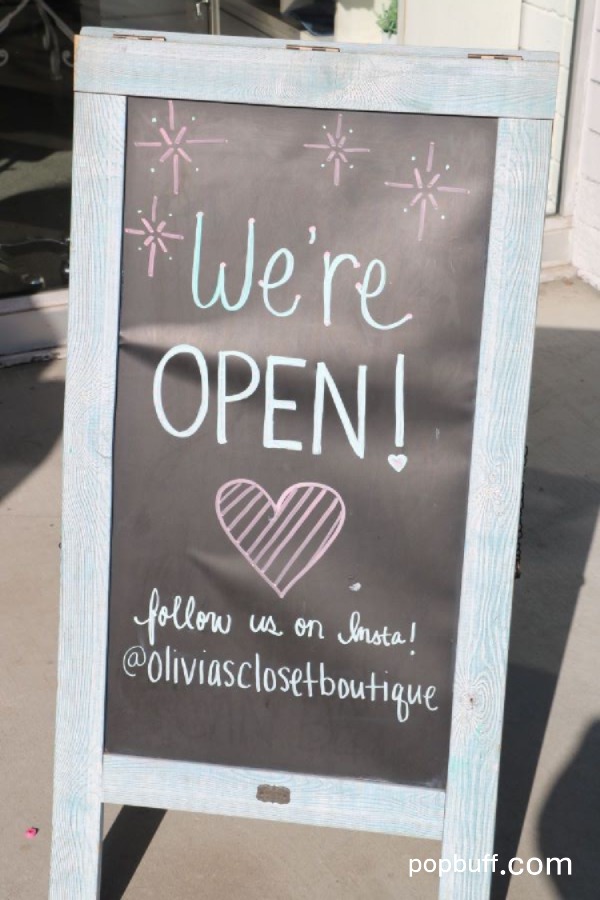 We're
OPEN!
follow us on Insta!
@oliviasclosetboutique
popbuff.com